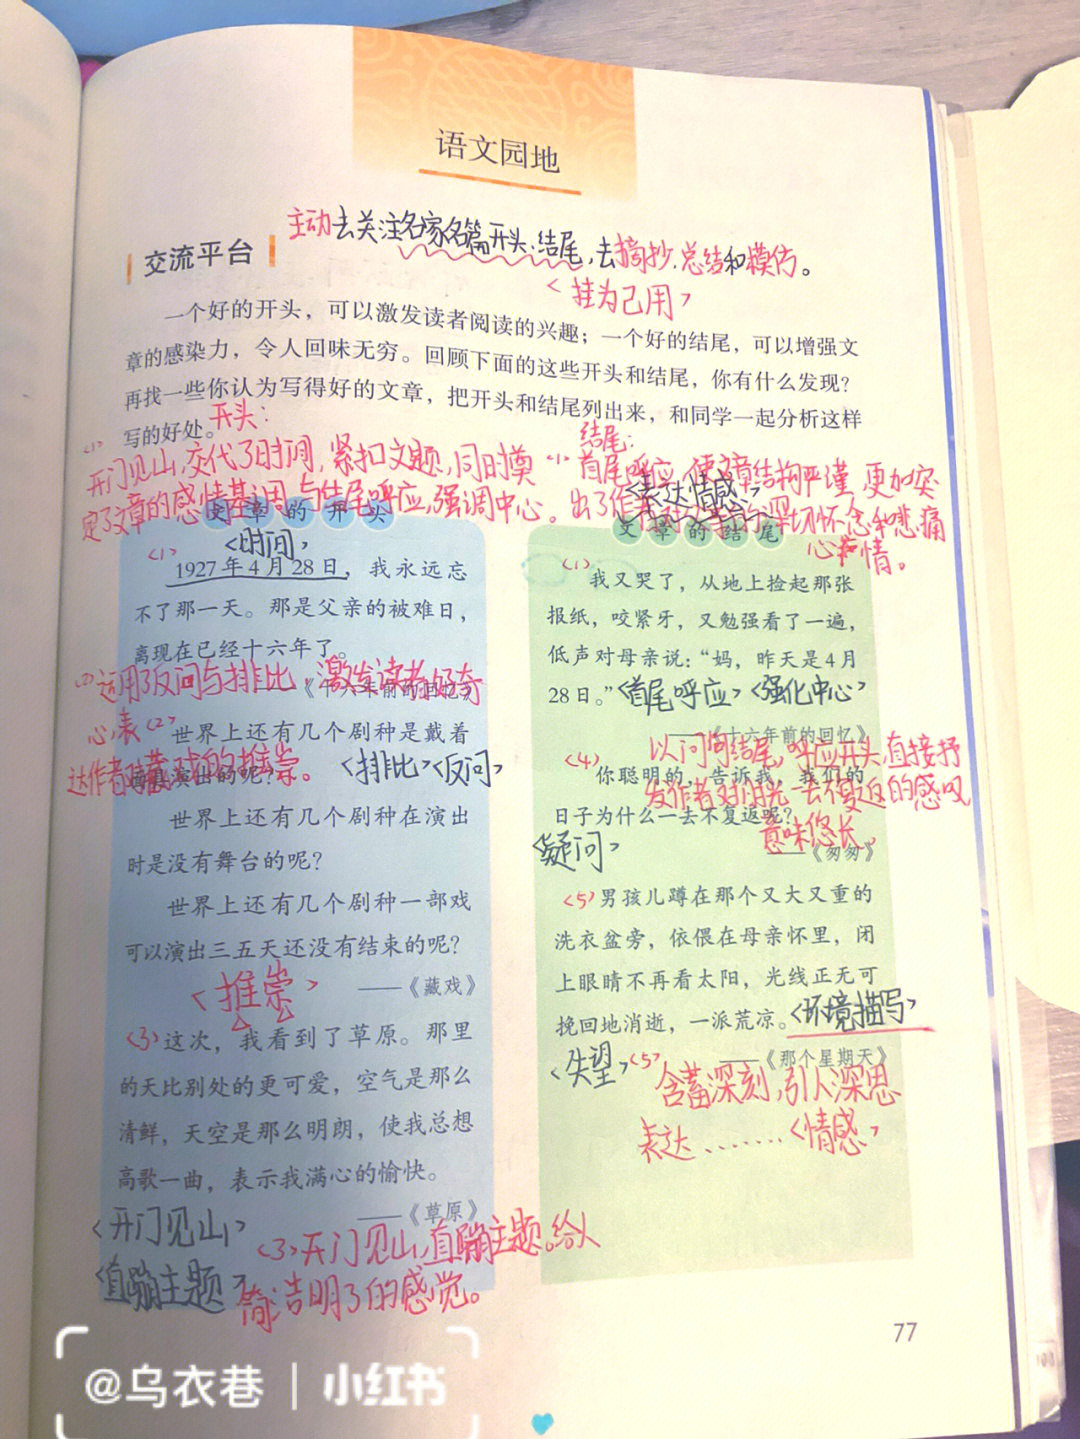 语文园地
主动去关注名家名篇开头、结尾,去摘抄、总结和模仿。
交流平台
<挂为己用>
一个好的开头，可以激发读者阅读的兴趣；一个好的结尾，可以增强文
章的感染力，令人回味无穷。回顾下面的这些开头和结尾，你有什么发现？
再找一些你认为写得好的文章，把开头和结尾列出来，和同学一起分析这样
写的好处。
开头:
(1)
开门见山,交代了时间,紧扣文题,同时奠
定了文章的感情基调,与结尾呼应,强调中心。
文章的开头
<时间>
(1)
1927年4月28日，我永远忘
不了那一天。那是父亲的被难日，
离现在已经十六年了。
——《十六年前的回忆》
(2)运用了反问与排比,激发读者好奇
心,表
达作者对藏戏的推崇。
(2)
世界上还有几个剧种是戴着
面具演出的呢？
<排比><反问>
世界上还有几个剧种在演出
时是没有舞台的呢？
世界上还有几个剧种一部戏
可以演出三五天还没有结束的呢？
——《藏戏》
<推崇>
(3)这次，我看到了草原。那里
的天比别处的更可爱，空气是那么
清鲜，天空是那么明朗，使我总想
高歌一曲，表示我满心的愉快。
——《草原》
<开门见山>
<直蹦主题>
(3)开门见山,直蹦主题。给人
简洁明了的感觉。
结尾:
(1)首尾呼应,使文章结构严谨,更加突
出了作者对 的深切怀念和悲痛
心情。
<表达情感>
文章的结尾
(1)
我又哭了，从地上捡起那张
报纸，咬紧牙，又勉强看了一遍，
低声对母亲说：“妈，昨天是4月
28日。”
<首尾呼应><强化中心>
——《十六年前的回忆》
(4)
以问句结尾,呼应开头,直接抒
发作者对时光一去不复返的感叹
意味悠长。
你聪明的，告诉我，我们的
日子为什么一去不复返呢？
<疑问>
——《匆匆》
(5)男孩儿蹲在那个又大又重的
洗衣盆旁，依偎在母亲怀里，闭
上眼睛不再看太阳，光线正无可
挽回地消逝，一派荒凉。
<环境描写>
——《那个星期天》
<失望>
(5)
含蓄深刻,引人深思
表达........<情感>
77
@乌衣巷｜小红书